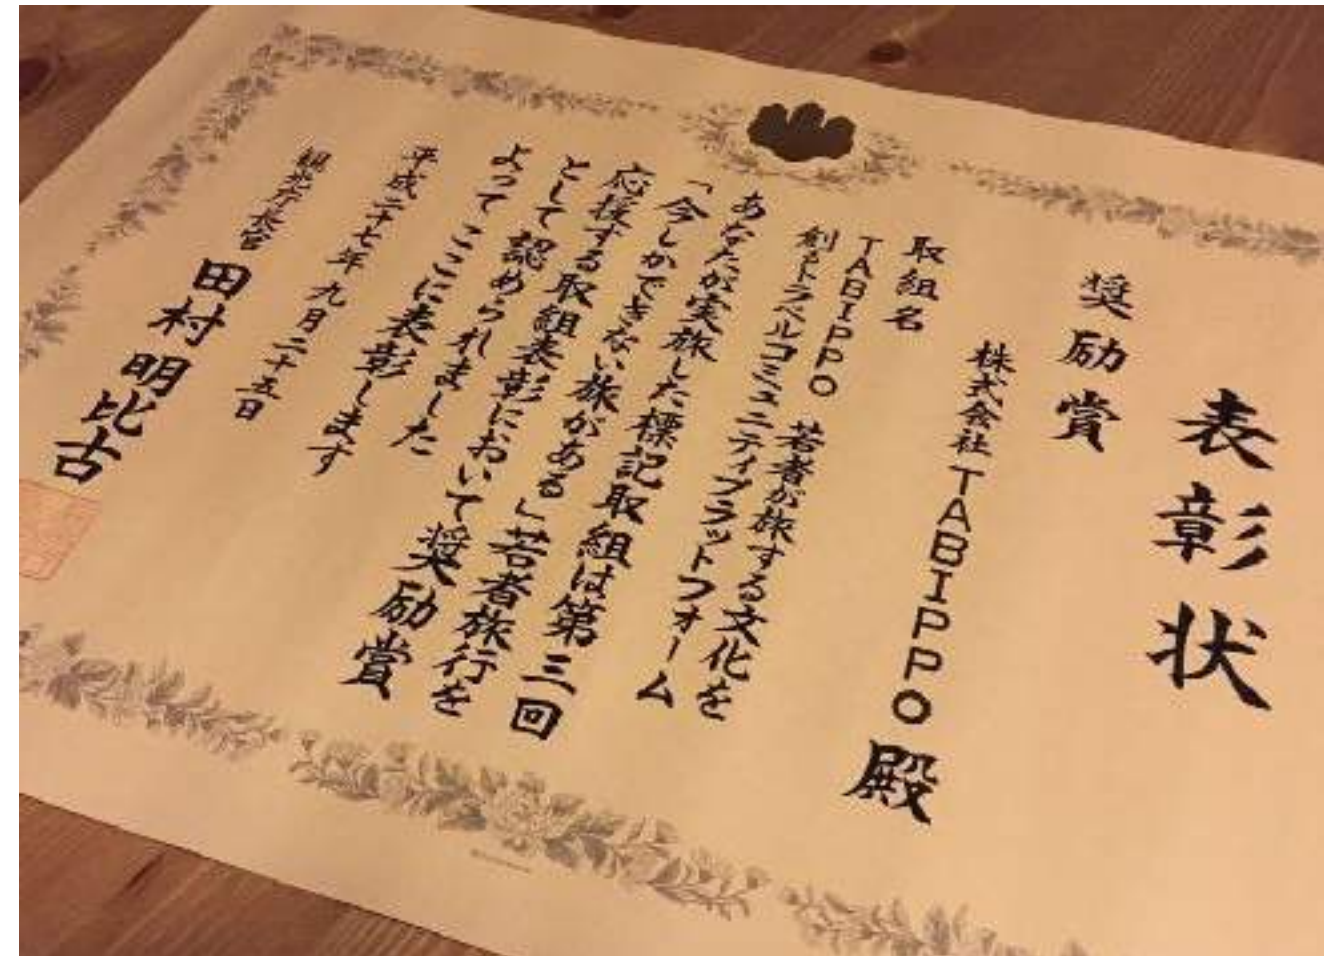 表彰状
奨励賞
株式会社TABIPPO殿
取組名
TABIPPO 若者が旅する文化を
創るトラベルコミュニティプラットフォーム
あなたが実施した標記取組は第三回
「今しかできない旅がある」若者旅行を
応援する取組表彰において奨励賞
として認められました
よってここに表彰します
平成二十七年九月二十五日
観光庁長官 田村明比古